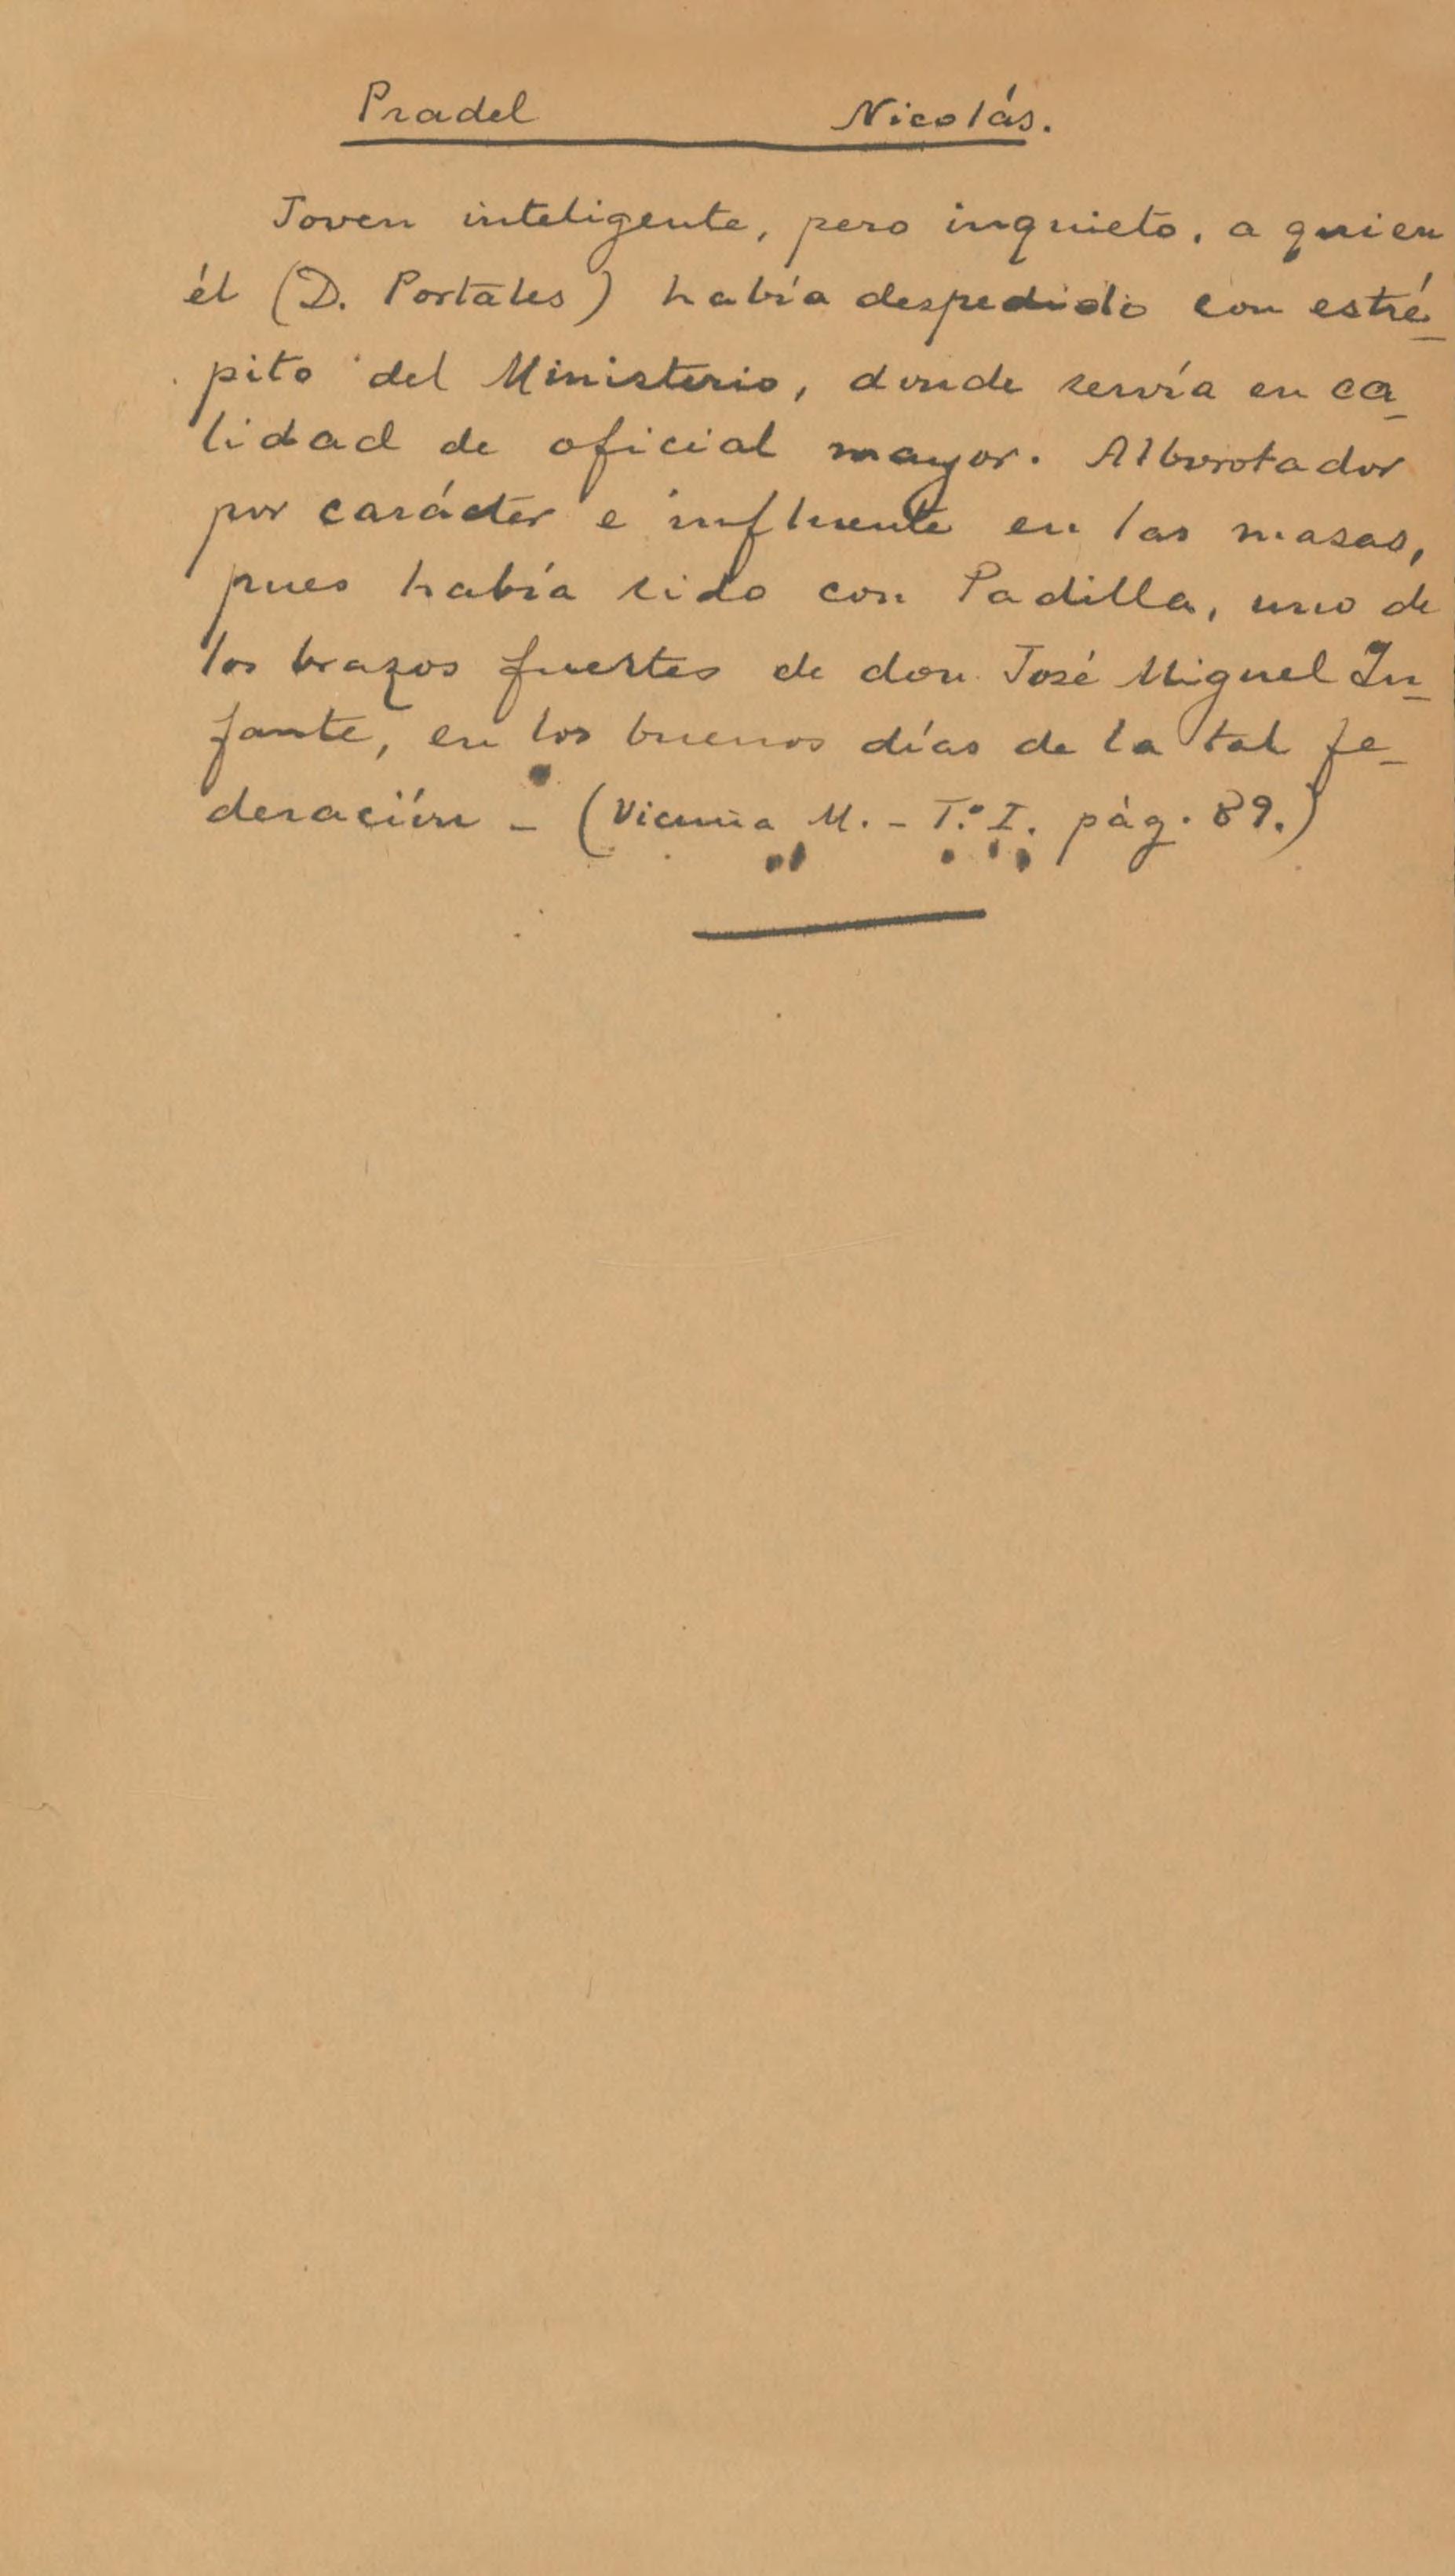 Pradel Nicolás.
Joven inteligente, pero inquieto, a quien
él (D. Portales) había despedido con estré-
pito del Ministerio, donde servía en ca-
lidad de oficial mayor. Alborotador
por carácter e influente en las masas,
pues había sido con Padilla, uno de
los brazos fuertes de don José Miguel In-
fante, en los buenos días de la tal fe-
deración - (Vicuña M. - T.º I. pág. 89.)